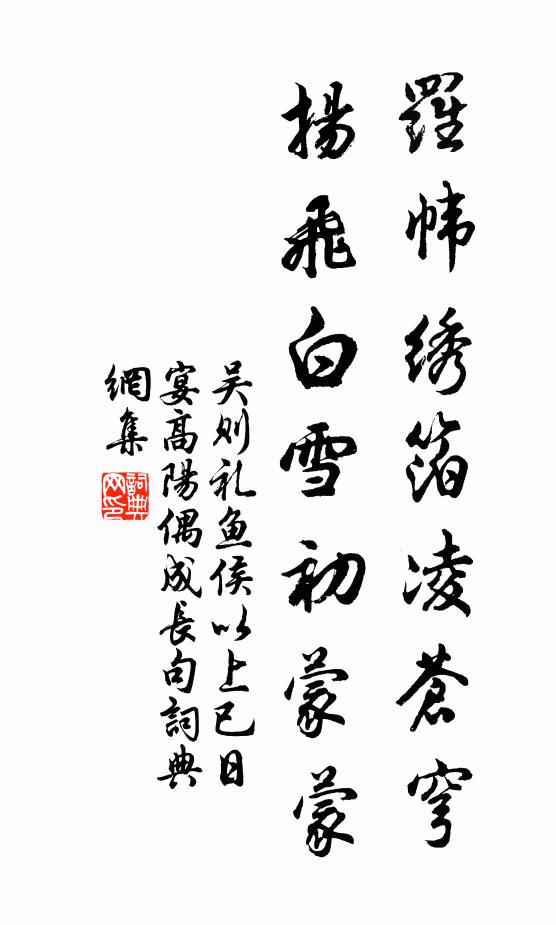 羅幃绣箔凌蒼穹
揚飛白雪初蒙蒙
吴则礼鱼侯以上巳日
宴高陽偶成長句詞典
網集
詞典
网印